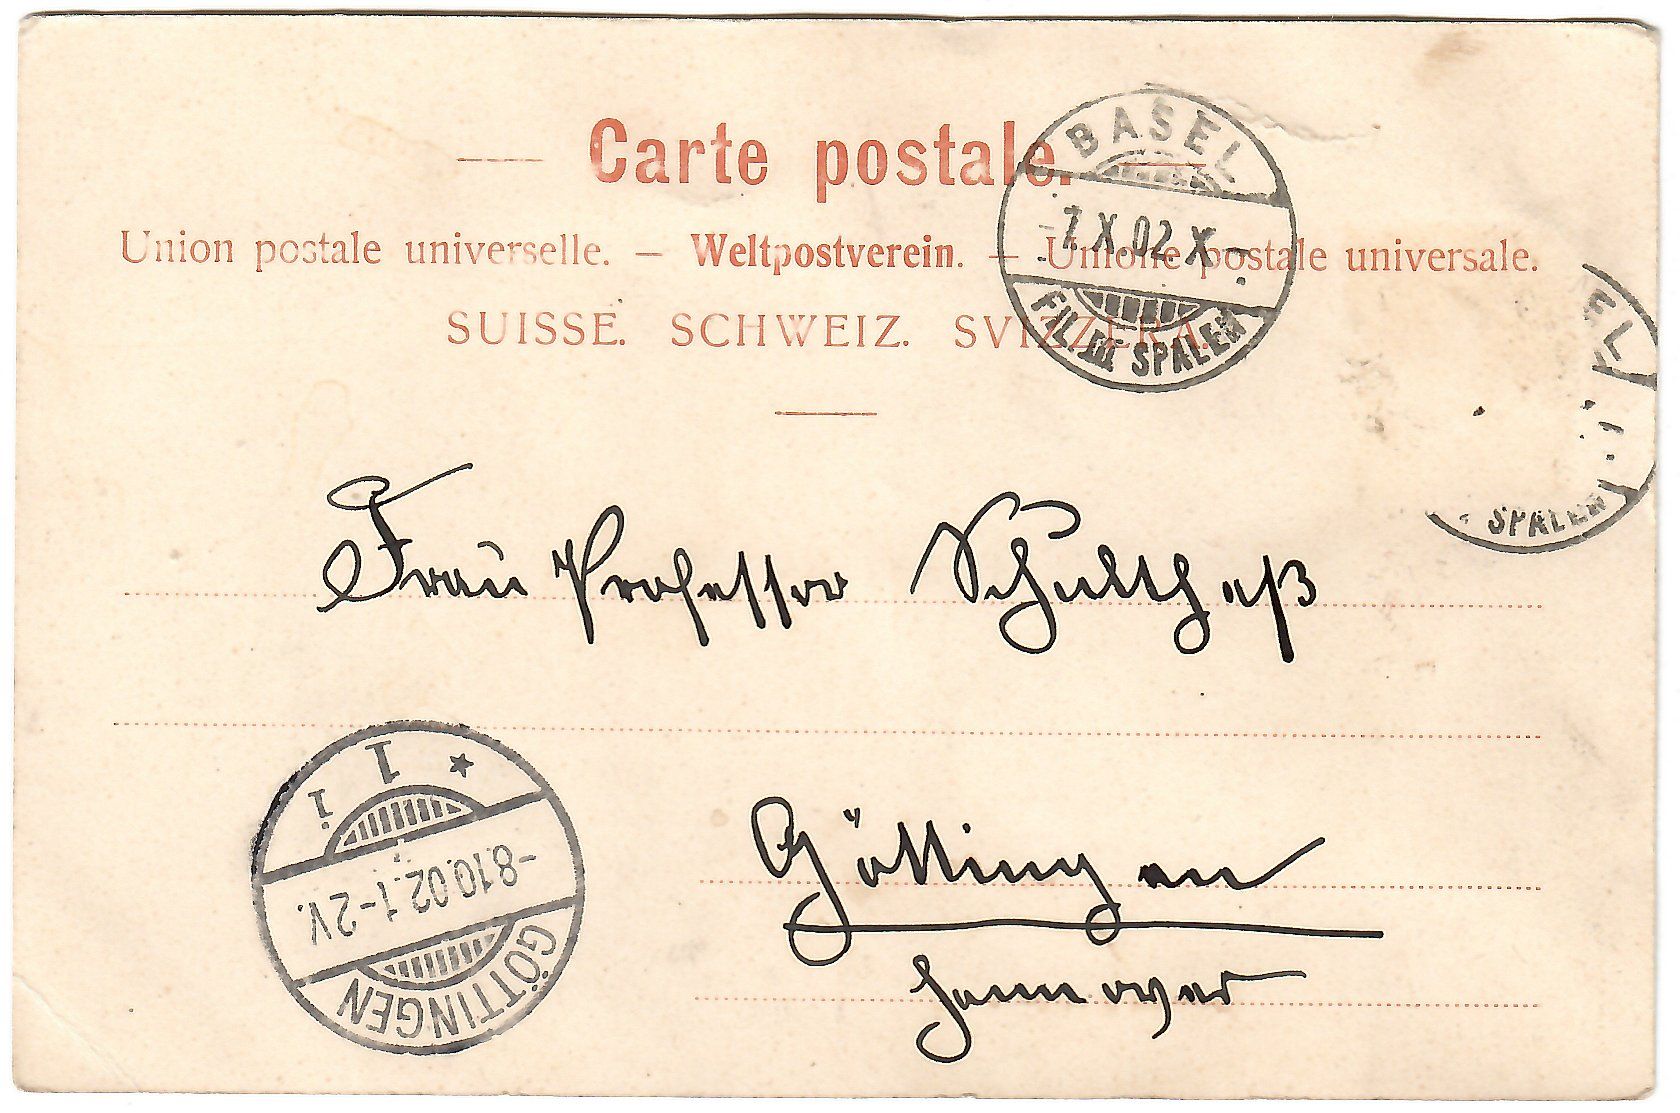 Carte postale.
Union postale universelle. – Weltpostverein. – Unione postale universale.
SUISSE. SCHWEIZ. SVIZZERA.
BASEL
7.X.02.X–
FIL. III SPALEN
SPALEN
Frau Professor Schultheß
Göttingen
Hannover
GÖTTINGEN
-8.10.02.1-2V.
* 1 i